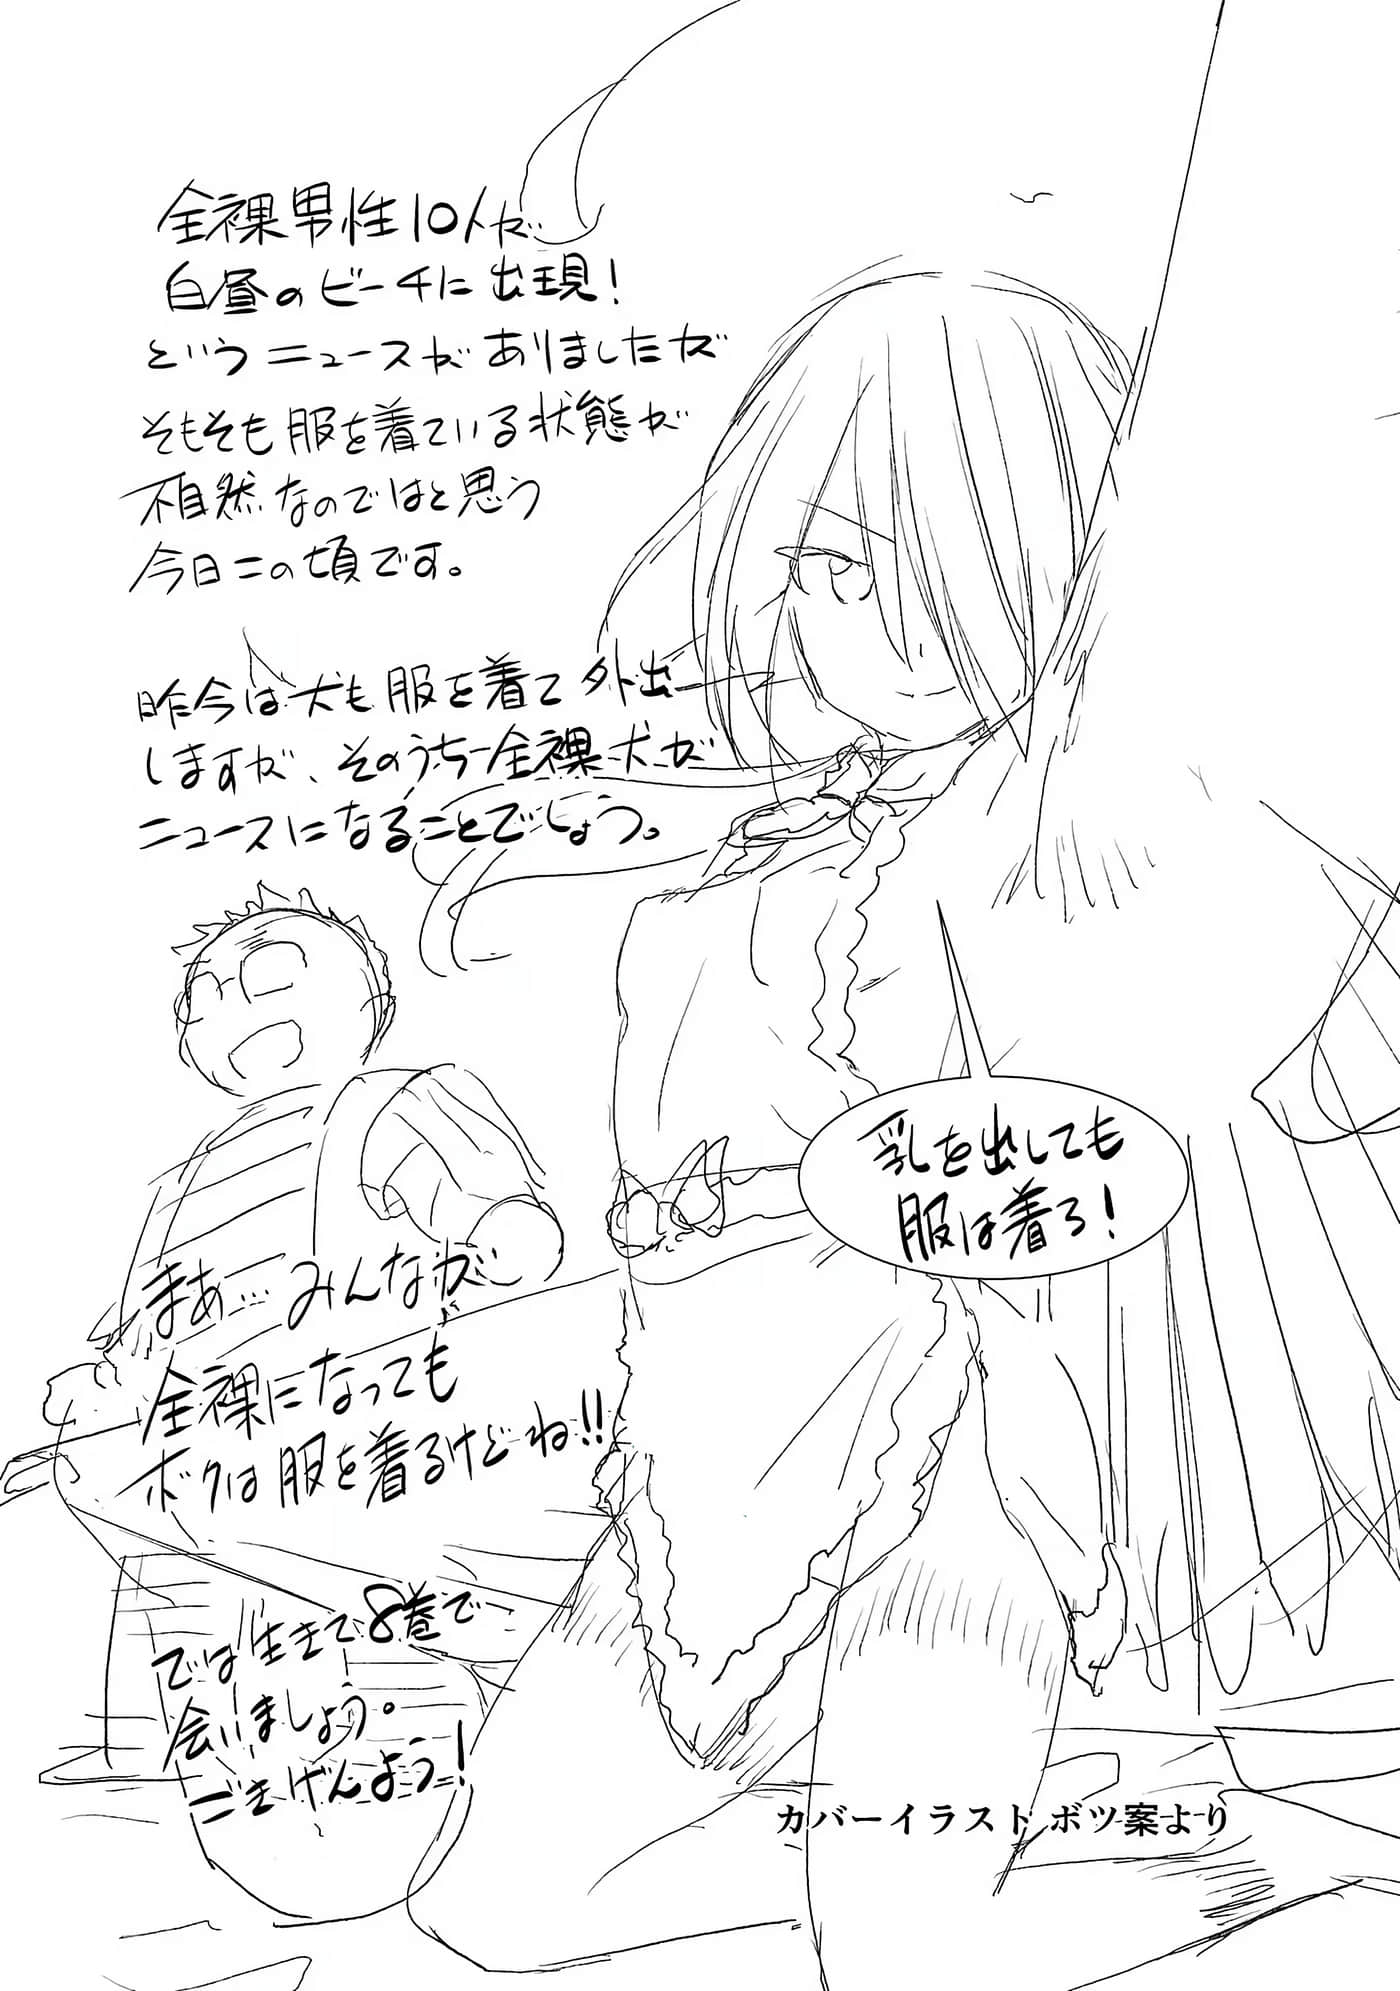 全裸男性10人が
白昼のビーチに出現!
というニュースがありましたが
そもそも服を着ている状態が
不自然なのではと思う
今日この頃です。
昨今は犬も服を着て外出
しますが、そのうち全裸犬が
ニュースになることでしょう。
乳を出しても
服は着ろ!
まぁ…みんなが
全裸になっても
ボクは服を着るけどね!!
では生きて8巻で
会いましょう。
ごきげんよう!
カバーイラスト ボツ案より